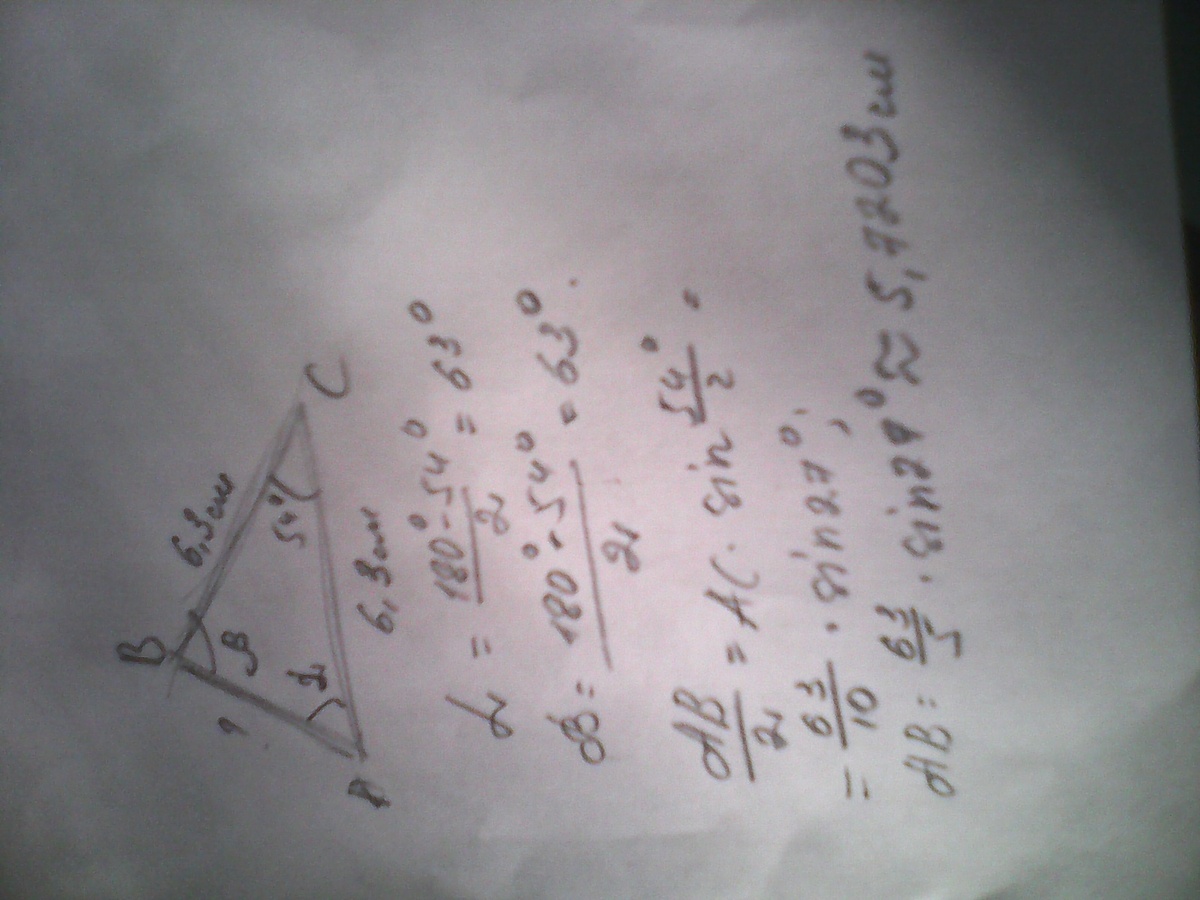 B
6,3см
?
β
54°
α
C
A
6,3см
α = (180° - 54°)/2 = 63°
β = (180° - 54°)/2 = 63°.
AB/2 = AC · sin 54°/2 =
= 63/10 · sin27°;
AB = 63/5 · sin27° ≈ 5,7203см